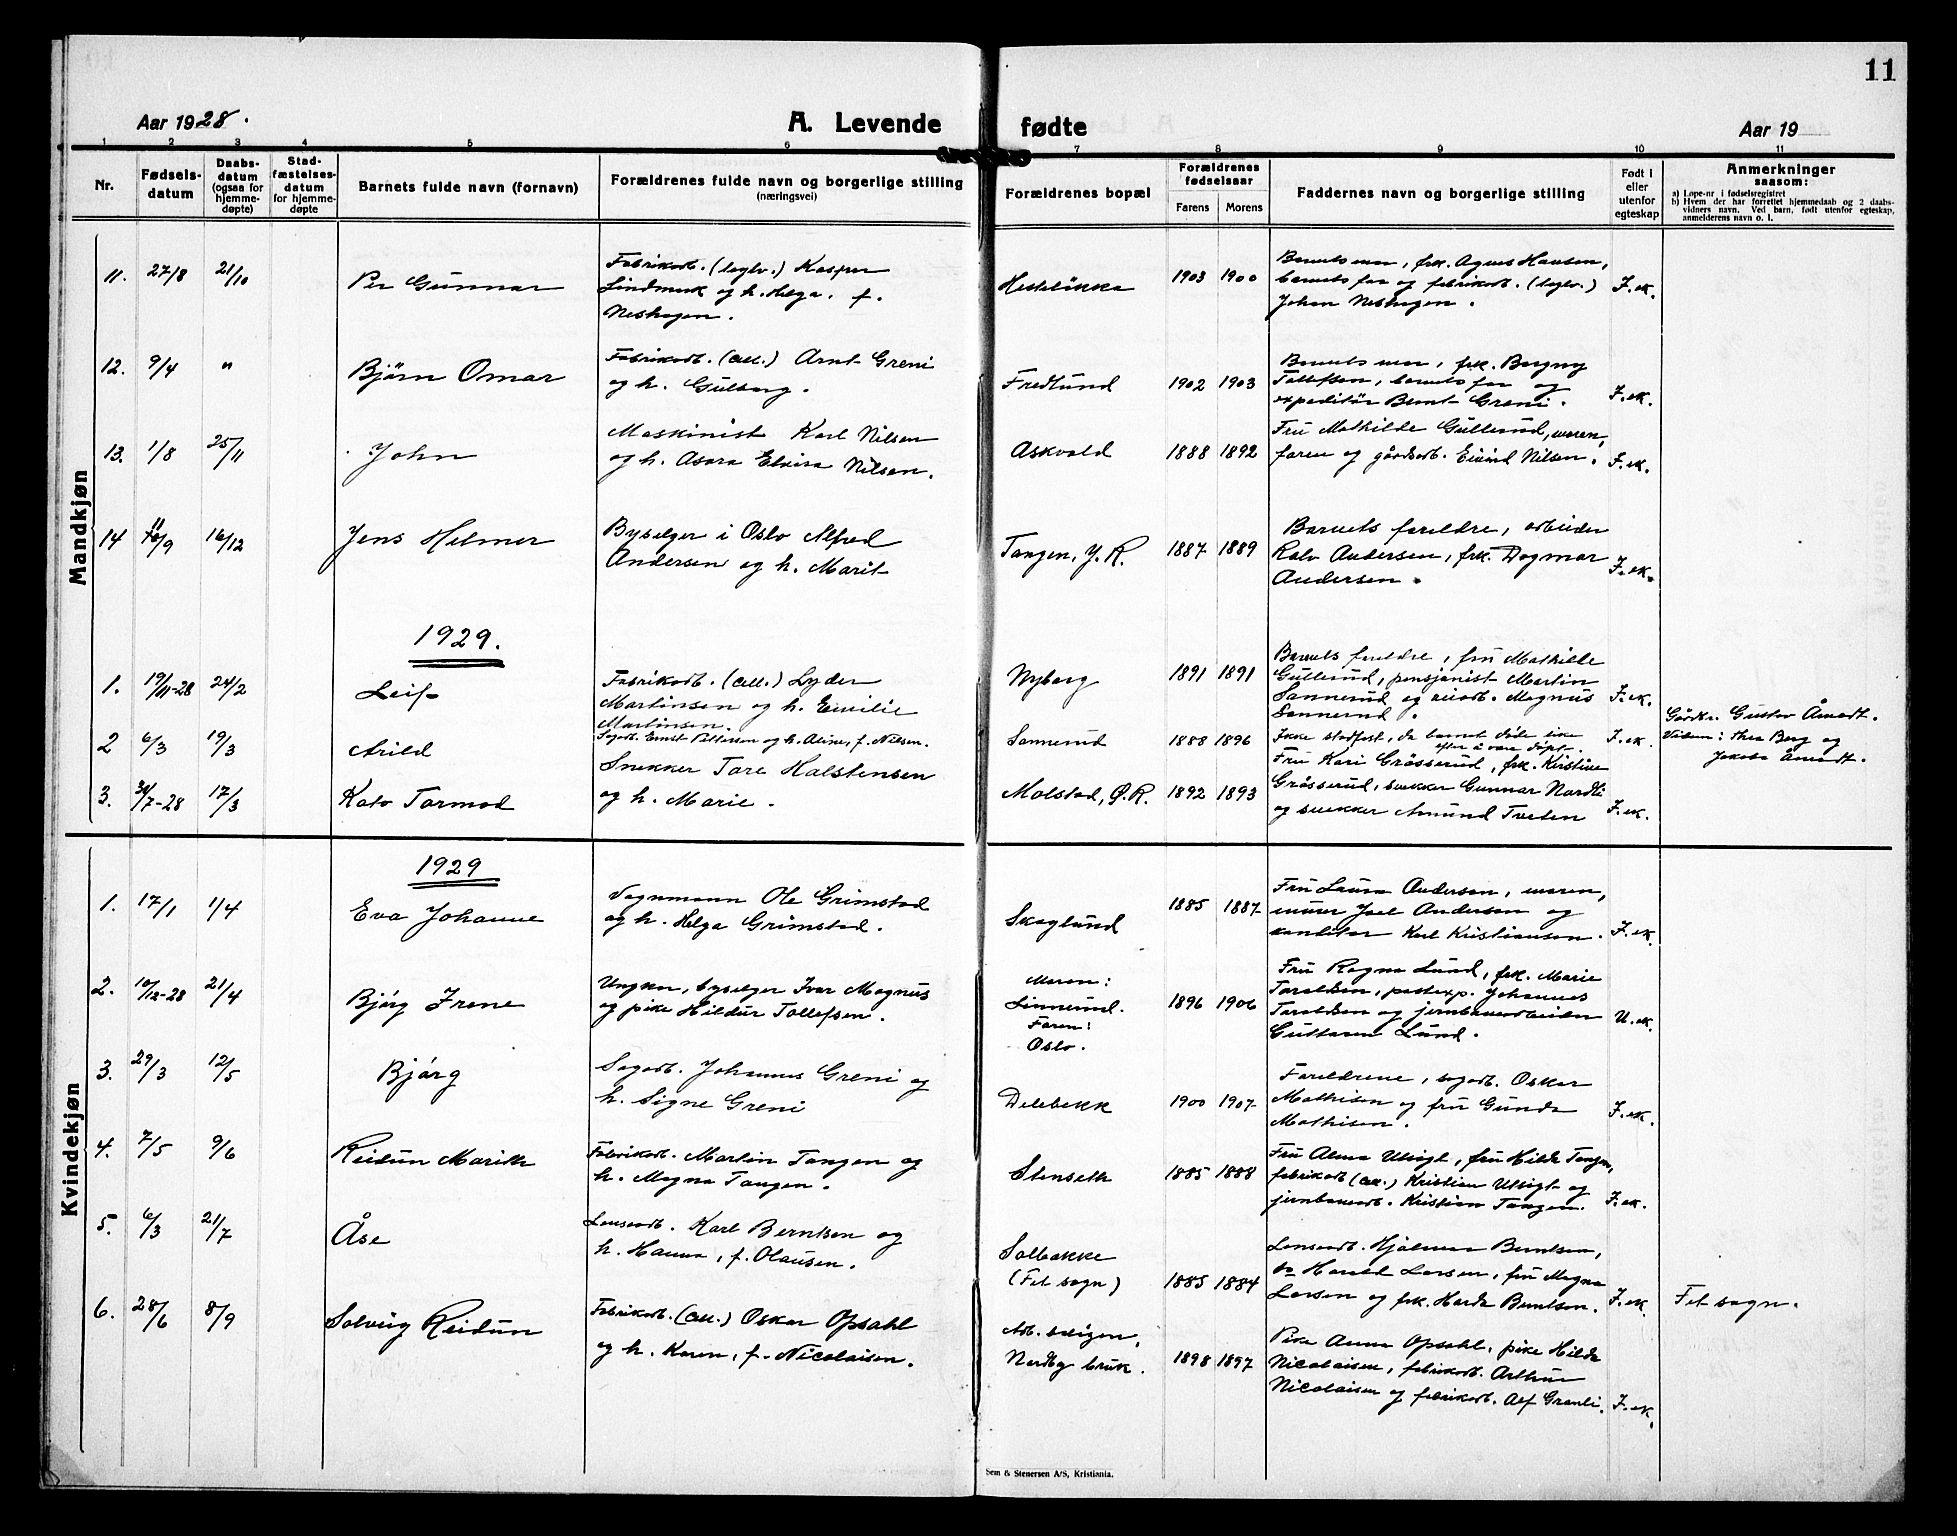 11
Aar 1928.
A. Levende fødte
Aar 19
1 2 3 4 5 6 7 8 9 10 11
Nr.
Fødsels-
datum
Daabs-
datum
(ogsaa for
hjemme-
døpte)
Stad-
fæstelses-
datum
for hjemme-
døpte
Barnets fulde navn (fornavn)
Forældrenes fulde navn og borgerlige stilling
(næringsvei)
Forældrenes bopæl
Forældrenes
fødselsaar
Farens Morens
Faddernes navn og borgerlige stilling
Født i
eller
utenfor
egteskap
Anmerkninger
saasom:
a) Løpe-nr. i fødselsregistret
b) Hvem der har forrettet hjemmedaab og 2 daabs-
vidners navn. Ved barn, født utenfor egteskap,
anmelderens navn o. l.
Mandkjøn
11. 27/8 21/10 Per Gunnar
Fabrikarb. (teglv.) Kasper
Lindmark og h. Helga, f.
Neshagen.
1903 1900
Barnets mor, frk. Agnes Hansen,
barnets far og fabrikarb. (teglv.)
Johan Neshagen.
I. ek.
12. 9/4 " Bjørn Omar
Fabrikarb. (Cell.) Arnt Greni
og h. Gulborg.
Fredlund 1902 1903
Barnets mor, frk. Borgny
Tollefsen, barnets far og
expeditør Bernt Greni.
I. ek.
13. 1/8 25/11 John
Maskinist Karl Nilsen
og h. Asora Elvira Nilsen.
Askvold 1888 1892
Fru Mathilde Gullerud, moren,
faren og gårdsarb. Eivind Nilsen.
I. ek.
14 11/9 16/12 Jens Helmer
Byselger i Oslo Alfred
Andersen og h. Marit
Tangen, Y. R. 1887 1889
Barnets foreldre, arbeider
Kalv Andersen, frk. Dagmar
Andersen.
I. ek.
1929.
1. 19/11-28 24/2 Leif
Fabrikarb. (Cell.) Lyder
Martinsen og h. Emilie
Martinsen.
Nyborg 1891 1891
Barnets foreldre, fru Mathilde
Gullerud, pensjonist Martin
Sannerud og veiarb. Magnus
Sannerud.
I. ek.
2 6/3 19/3 Arild
Sagarb. Ernst Pettersen og h. Aline, f. Nilsen.
Sannerud 1888 1896
Ikke stadfest, da barnet døde like
efter å være døpt.
I. ek.
Gårdbr. Gustav Åmodt.
Vidner: Thea Berg og
Jakoba Åmodt.
3. 30/7-28 17/3 Kalv Tormod
Snekker Tore Halstensen
og h. Marie.
Molstad, Ø. R. 1892 1893
Fru Kari Gråsserud, frk. Kristine
Gråsserud, snekker Gunnar Nordli
og snekker Amund Tveten
I. ek.
Kvindekjøn
1929
1. 17/1 1/4 Eva Johanne
Vognmann Ole Grimstad
og h. Helga Grimstad.
Skoglund 1885 1887
Fru Laura Andersen, moren,
murer Joel Andersen og
konditor Karl Kristiansen.
I. ek.
2. 10/12-28 21/4 Bjørg Irene
Ungkar, byselger Ivar Magnus
og pike Hildur Tollefsen.
Moren:
Linnerud.
Faren:
Oslo.
1896 1906
Fru Ragna Lund, frk. Marie
Toraldsen, postexp. Johannes
Toraldsen og jernbanearbeider
Guttorm Lund.
U. ek.
3. 29/3 12/5 Bjørg
Sagarb. Johannes Greni og
h. Signe Greni
Delebekk 1900 1907
Foreldrene, sagarb. Oskar
Mathisen og fru Gunda
Mathisen.
I. ek.
4. 7/5 9/6 Reidun Marith
Fabrikarb. Martin Tangen og
h. Magna Tangen.
Stenseth 1885 1888
Fru Alma Utsigt, fru Hilda Tangen,
fabrikarb (Cell.) Kristian Utsigt og
jernbanearb. Kristian Tangen.
I. ek.
5. 6/3 21/7 Åse
Lensearb. Karl Berntsen og
h. Hanna, f. Olausen.
Solbakke
(Fet sogn)
1885 1884
Lensearb. Hjalmar Berntsen,
do Harald Larsen, fru Magna
Larsen og frk. Harda Berntsen.
I. ek.
Fet sogn.
6. 28/6 8/9 Solveig Reidun
Fabrikarb. (Cell.) Oskar Opsahl
og h. Karen, f. Nicolaisen.
Arb. boligen,
Nordby bruk.
1898 1897
Pike Anna Opsahl, pike Hilda
Nicolaisen, fabrikarb. Arthur
Nicolaisen og fabrikarb. Alf Granli.
I. ek.
Sem & Stenersen A/S, Kristiania.